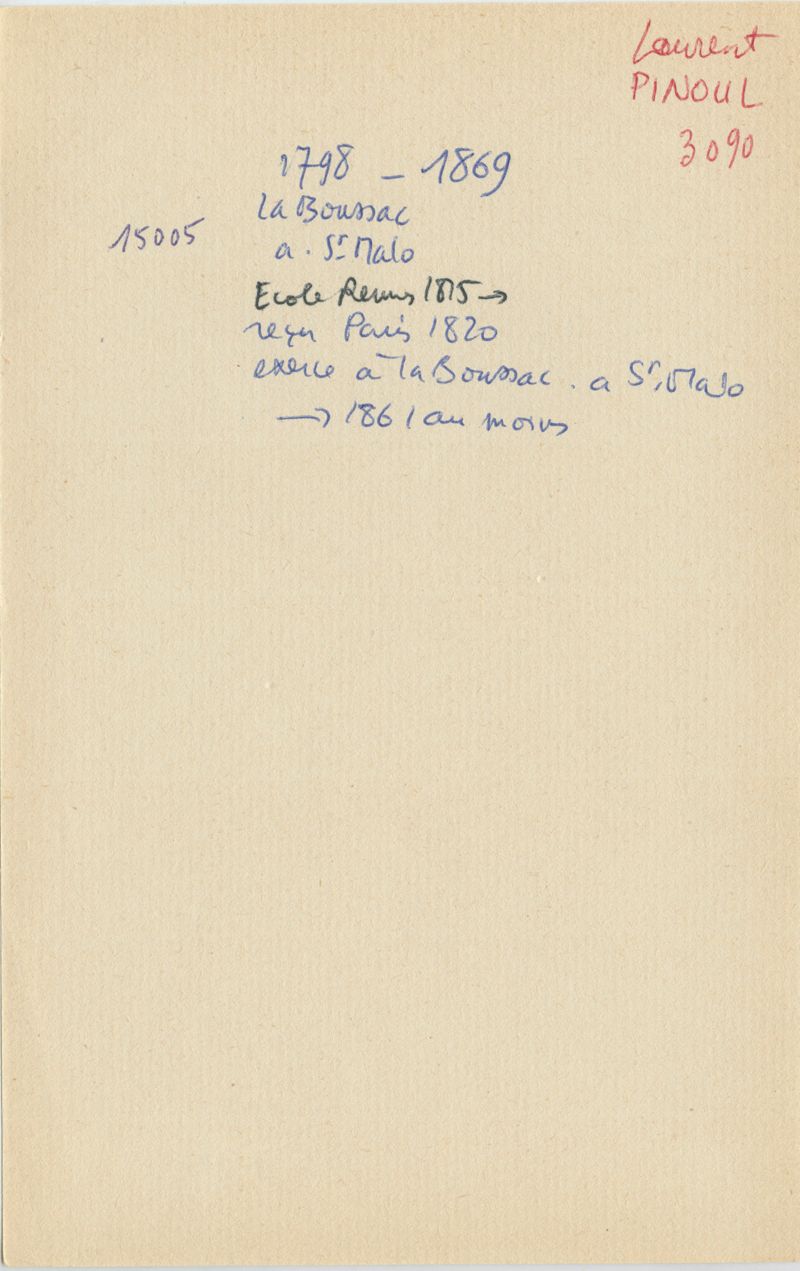 Laurent
PINOUL
3090
1798 - 1869
la Boussac
15005
a. St Malo
Ecole Rennes 1815 →
reçu Paris 1820
exerce à la Boussac. a St. Malo
→ 1861 au moins